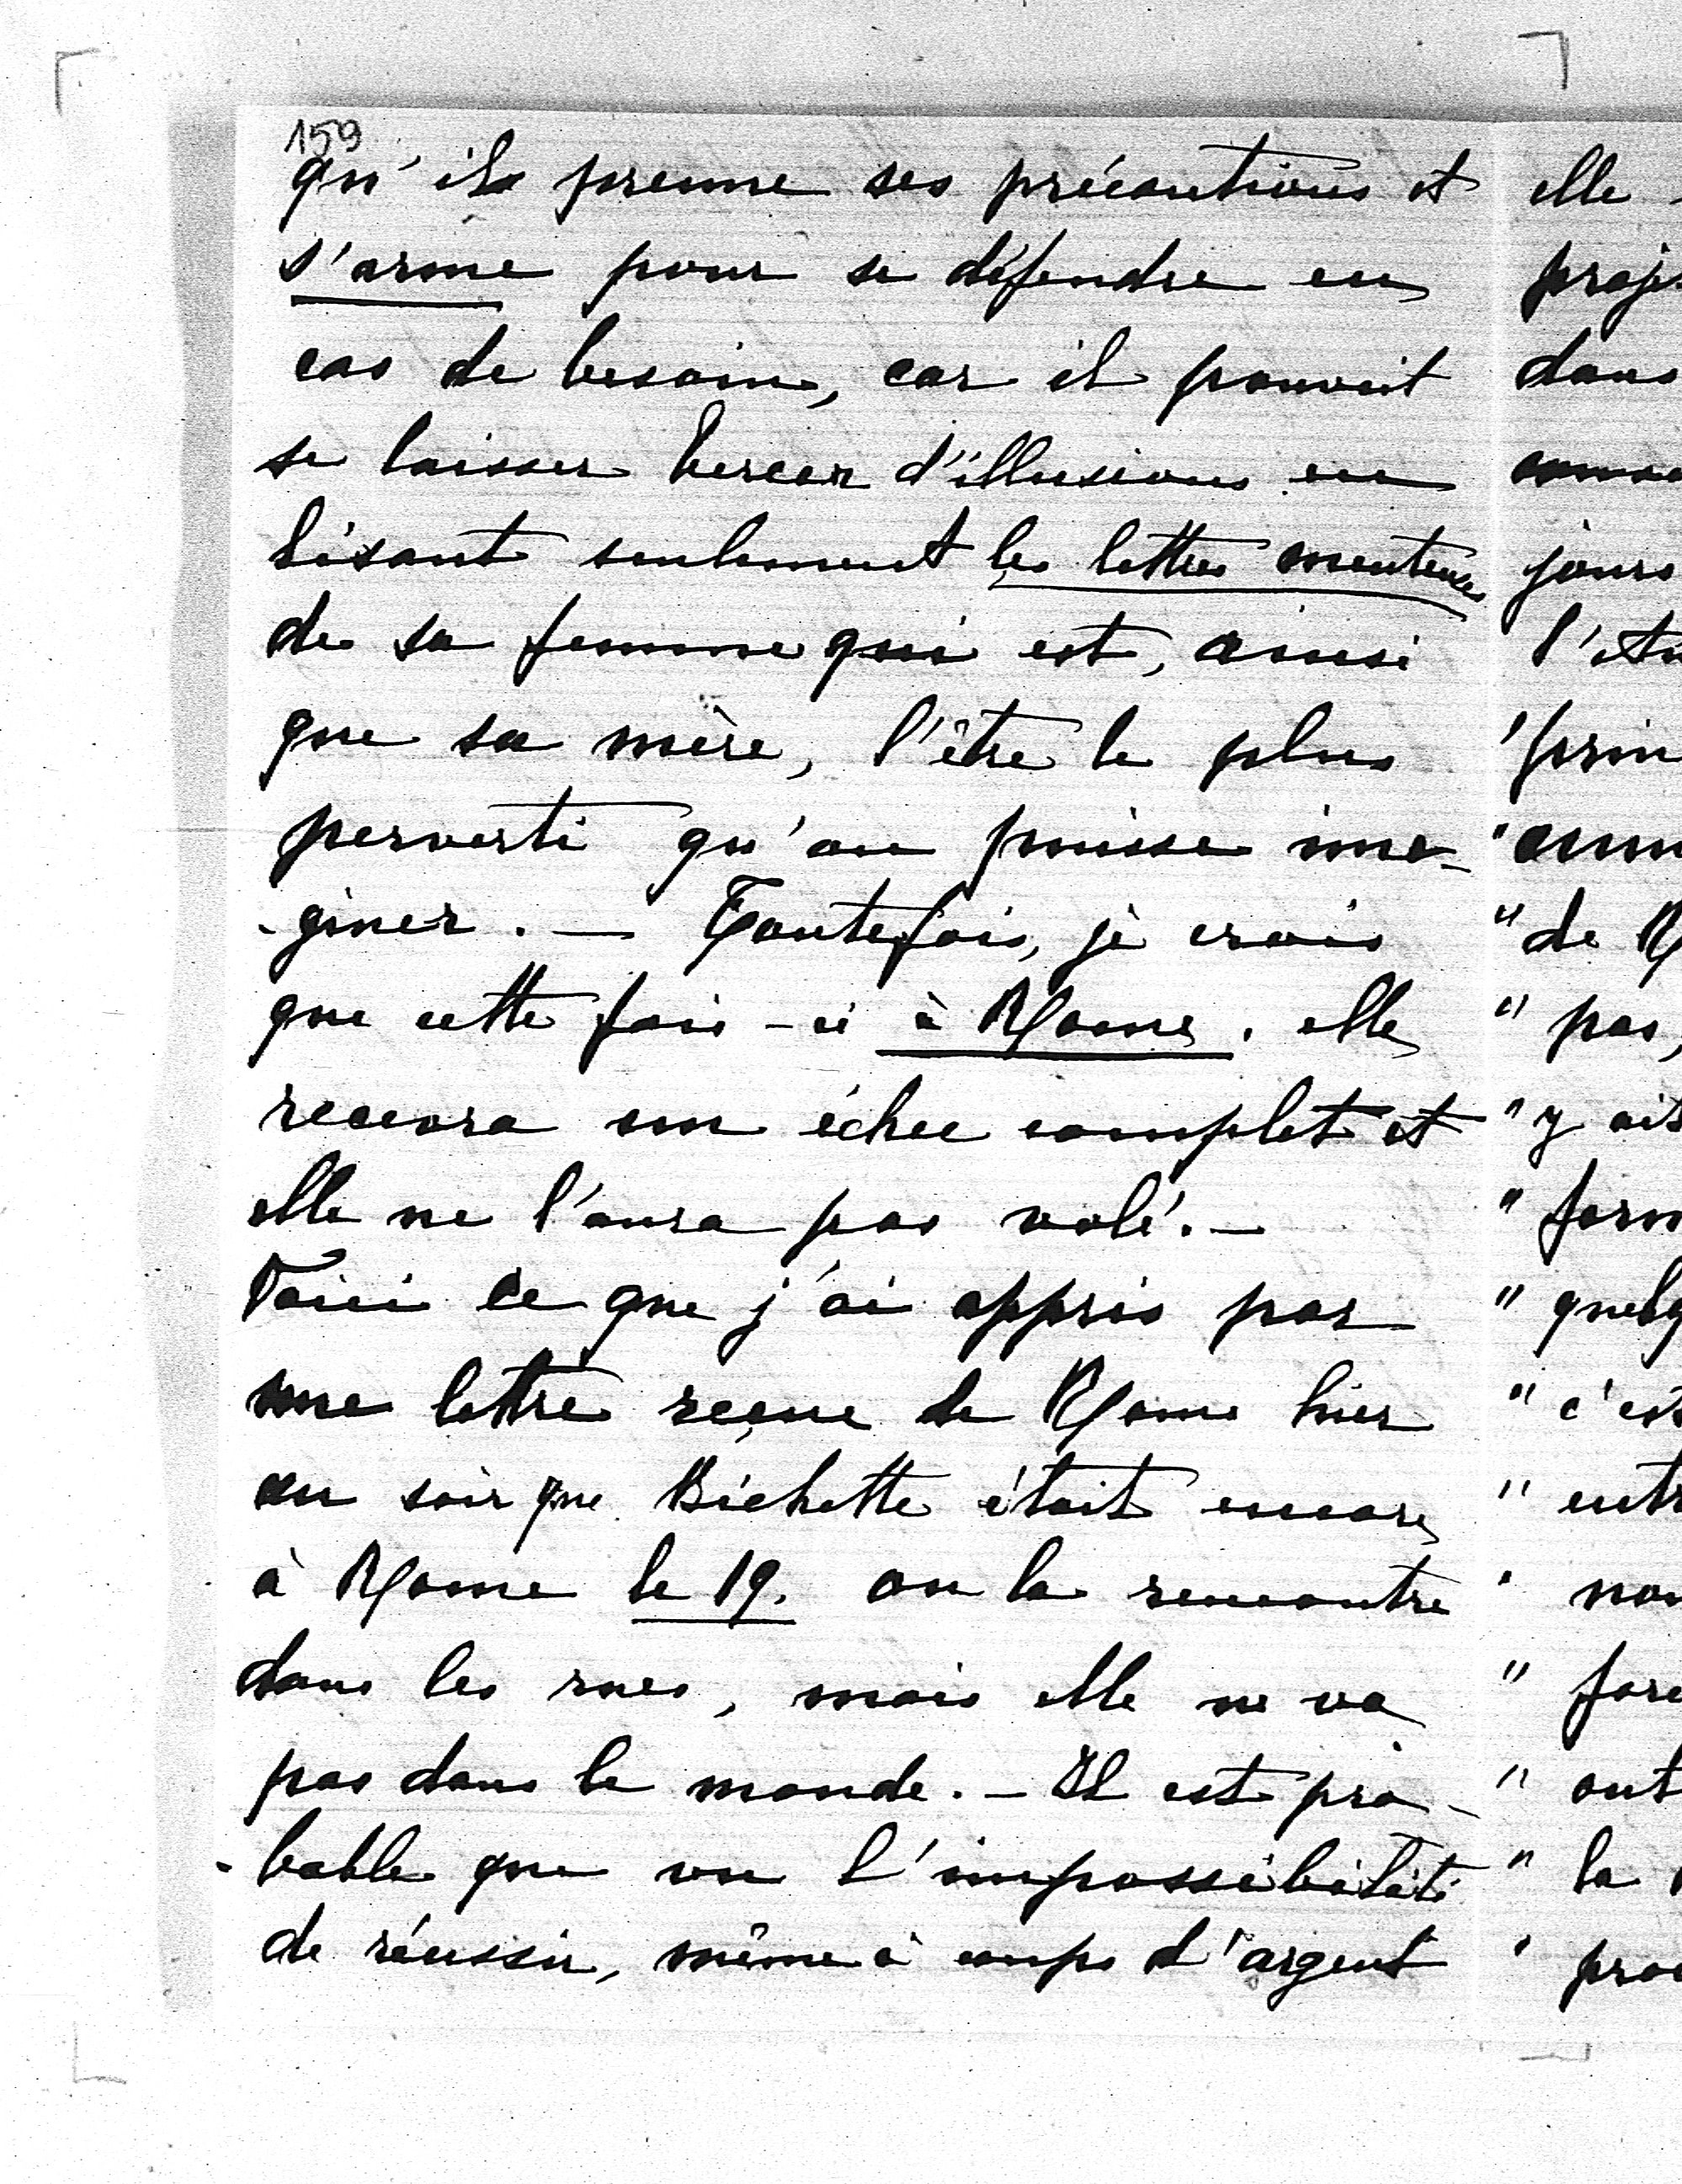 159
qu'il prenne ses précautions et
s'arme pour se défendre en
cas de besoin, car il pouvait
se laisser bercer d'illusions en
lisant seulement les lettres menteuses
de sa femme qui est, ainsi
que sa mère, l'être le plus
perverti qu'on puisse ima-
-giner. — Toutefois, je crois
que cette fois-ci à Rome, elle
recevra un échec complet et
elle ne l'aura pas volé. —
Voici ce que j'ai appris par
une lettre reçue de Rome hier
au soir que Bichette était encore
à Rome le 19. on la rencontre
dans les rues, mais elle ne va
pas dans le monde. — Il est pro-
-bable que vu l'impossibilité
de réussir, même à coups d'argent
elle
proje
dans
jours
l'
" prin
"
" de R
" pas,
" y ait
" form
" quelq
" c'est
" entr
" non
" forc
" ont
" la
" pro